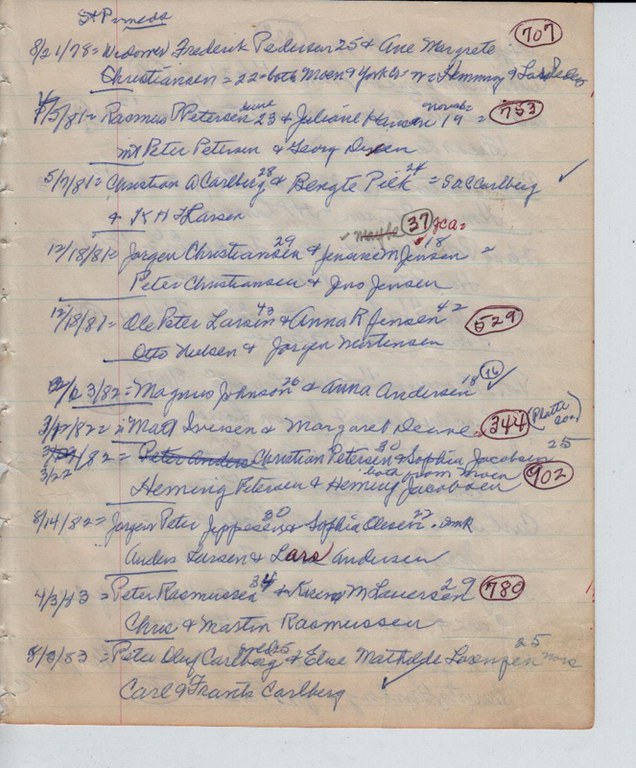 St
707
8/21/78 = Widower Frederik Pedersen 25 & Ane Margrete
Christiansen = 22 = both Moen & York Cr. = Hemming & Lars
7/5/81 = Rasmus P Petersen 23 & Juliane Hansen 19 = 753
Peter Petersen & Georg
5/7/81 = Christian A Carlberg 28 & Bengte Piek 24 = S A C Carlberg
& K H F Larsen
maybe 37 yea =
12/18/81 = Jorgen Christiansen 29 & M Jensen 18 =
Peter Christiansen & Jens Jensen
12/18/81 = Ole Peter Larsin 43 & Anna R Jensen 42 529
Otto Nielsen & Jorgen Mortensen
2/23/82 = Magnus Johnson 26 & Anna Andersen 18 16
3/12/82 = Matt Iversen & Margaret 344 (Platte
3/22/82 = Peter Anders Christian Petersen 30 & Sophia Jacobsen 25
both from Moen
Heming Petersen & Heming Jacobsen 902
8/14/82 = Jorgen Peter Jeppesen 30 & Sophia Olesen 22
Anders Larsen & Lars Andersen
4/3/83 = Peter Rasmussen 34 & M Lauersen 29 780
Chris & Martin Rasmussen
5/8/83 = Peter Oluf Carlberg & Elise Mathilde 25
Carl & Frants Carlberg